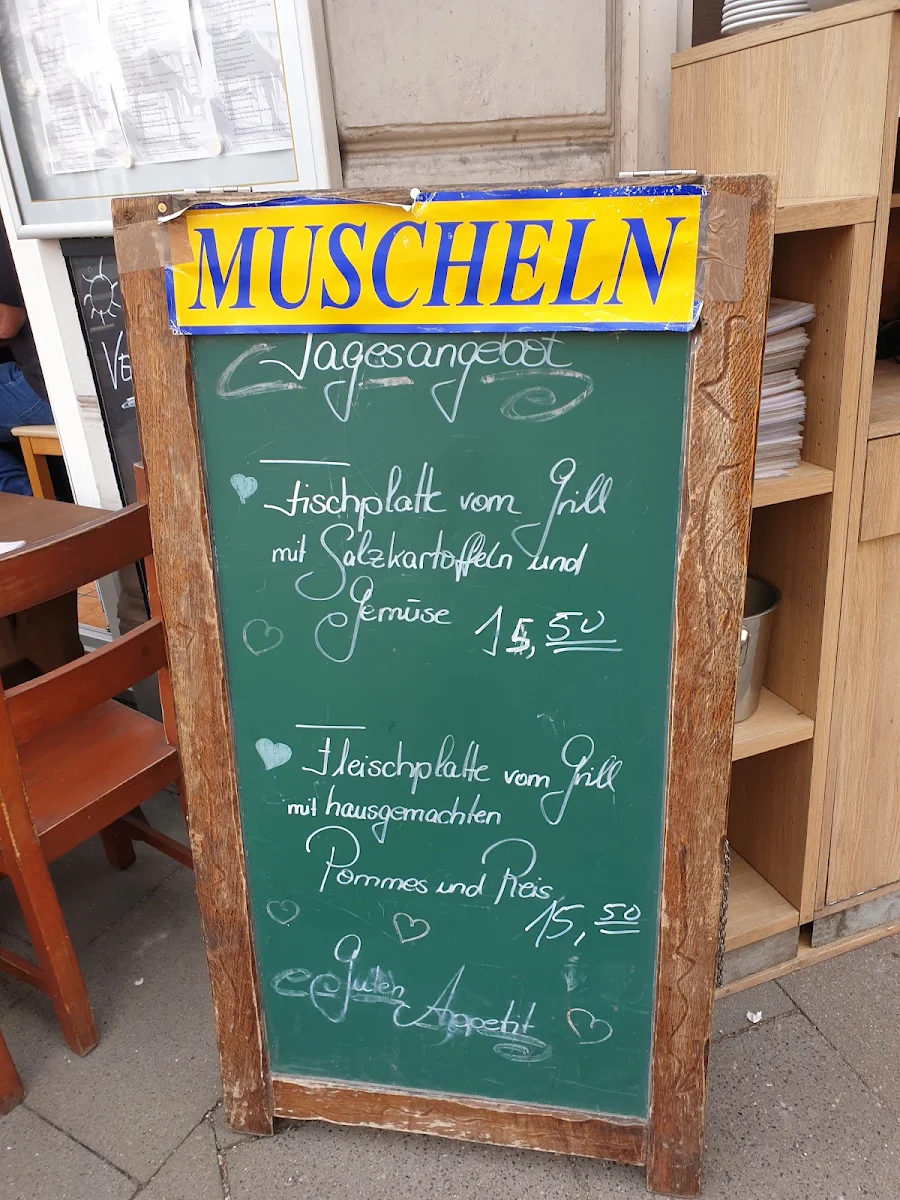 MUSCHELN
Tagesangebot
Fischplatte vom Grill
mit Salzkartoffeln und
Gemüse 15,50
Fleischplatte vom Grill
mit hausgemachten
Pommes und Reis
15,50
Guten
Appetit